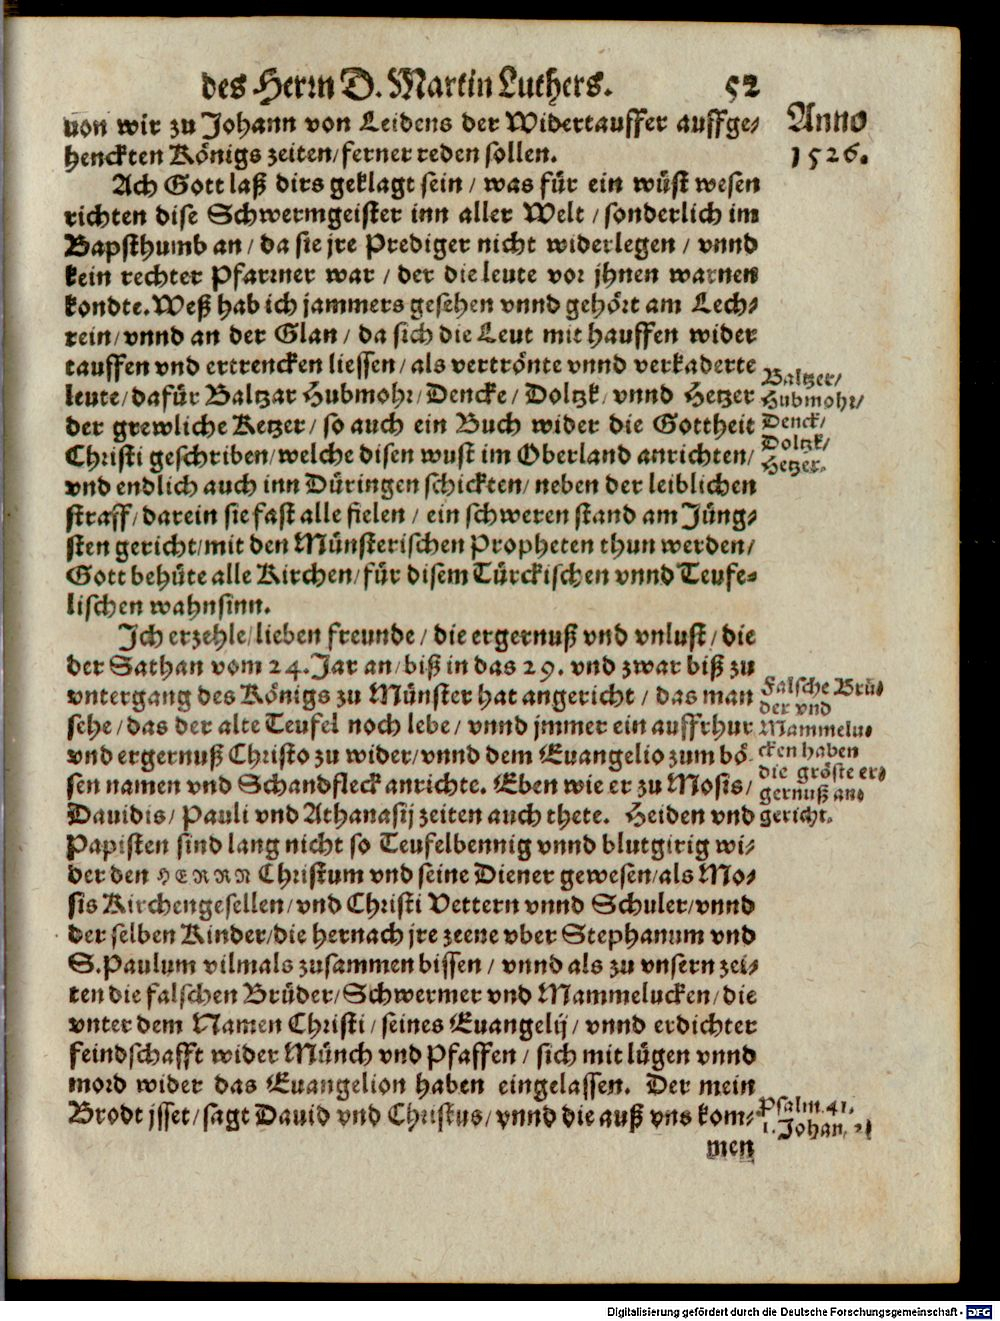 des Herrn D. Martin Luthers. 52
Anno
1526.
uon wir zu Johann von Leidens der Widertauffer auffge-
henckten Königs zeiten/ ferner reden sollen.
Ach Gott laß dirs geklagt sein / was für ein wüst wesen
richten dise Schwermgeister inn aller Welt / sonderlich im
Bapsthumb an / da sie jre Prediger nicht widerlegen / vnnd
kein rechter Pfarrner war / der die leute vor jhnen warnen
kondte. Weß hab ich jammers gesehen vnnd gehört am Lech-
rein/ vnnd an der Glan / da sich die Leut mit hauffen wider
tauffen vnd ertrencken liessen / als vertrönte vnnd verkaderte
leute/ dafür Baltzar Hubmohr/ Dencke / Doltzk/ vnnd Hetzer
der grewliche Ketzer / so auch ein Buch wider die Gottheit
Christi geschriben/ welche disen wust im Oberland anrichten/
vnd endlich auch inn Düringen schickten/ neben der leiblichen
straff/ darein sie fast alle fielen / ein schweren stand am Jüng-
sten gericht/ mit den Münsterischen Propheten thun werden/
Gott behüte alle Kirchen/ für disem Türckischen vnnd Teufe-
lischen wahnsinn.
Baltzer/
Hubmohr/
Denck/
Doltzk/
Hetzer.
Ich erzehle/ lieben freunde / die ergernuß vnd vnlust / die
der Sathan vom 24. Jar an/ biß in das 29. vnd zwar biß zu
vntergang des Königs zu Münster hat angericht / das man
sehe / das der alte Teufel noch lebe / vnnd jmmer ein auffrhur
vnd ergernuß Christo zu wider/ vnnd dem Euangelio zum bö-
sen namen vnd Schandfleck anrichte. Eben wie er zu Mosis/
Dauidis / Pauli vnd Athanasij zeiten auch thete. Heiden vnd
Papisten sind lang nicht so Teufelbennig vnnd blutgirig wi-
der den HERRN Christum vnd seine Diener gewesen/ als Mo-
sis Kirchengesellen/ vnd Christi Vettern vnnd Schuler/ vnnd
der selben Kinder/ die hernach jre zeene vber Stephanum vnd
S. Paulum vilmals zusammen bissen / vnnd als zu vnsern zei-
ten die falschen Brüder/ Schwermer vnd Mammelucken/ die
vnter dem Namen Christi / seines Euangelij / vnnd erdichter
feindschafft wider Münch vnd Pfaffen / sich mit lügen vnnd
mord wider das Euangelion haben eingelassen. Der mein
Brodt jsset/ sagt Dauid vnd Christus/ vnnd die auß vns kom-
men
Falsche Brü-
der vnd
Mammelu-
cken haben
die gröste er-
gernuß an-
gericht.
Psalm. 41.
1. Johan. 2
Digitalisierung gefördert durch die Deutsche Forschungsgemeinschaft - DFG